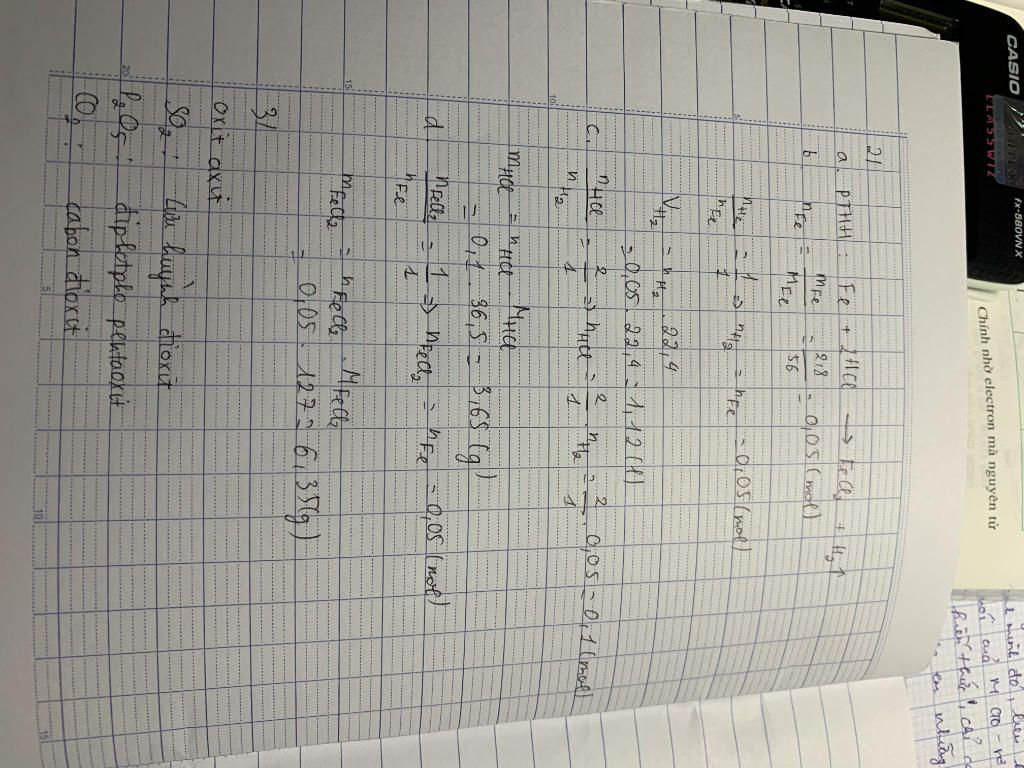 2)
a. PTHH : Fe + 2HCl → FeCl2 + H2↑
b. nFe = mFe/MFe = 2,8/56 = 0,05 (mol)
nH2/nFe = 1/1 ⇒ nH2 = nFe = 0,05 (mol)
VH2 = nH2 . 22,4
= 0,05 . 22,4 = 1,12 (l)
c. nHCl/nH2 = 2/1 ⇒ nHCl = 2/1 . nH2 = 2/1 . 0,05 = 0,1 (mol)
mHCl = nHCl . MHCl
= 0,1 . 36,5 = 3,65 (g)
d. nFeCl2/nFe = 1/1 ⇒ nFeCl2 = nFe = 0,05 (mol)
mFeCl2 = nFeCl2 . MFeCl2
= 0,05 . 127 = 6,35 (g)
3)
oxit axit
SO2 : lưu huỳnh đioxit
P2O5 : điphotpho pentaoxit
CO2 : cabon đioxit
CASIO
CLASSWIZ
fx-580VNX
Chính nhờ electron mà nguyên tử
5
10
15
20
5
10
15